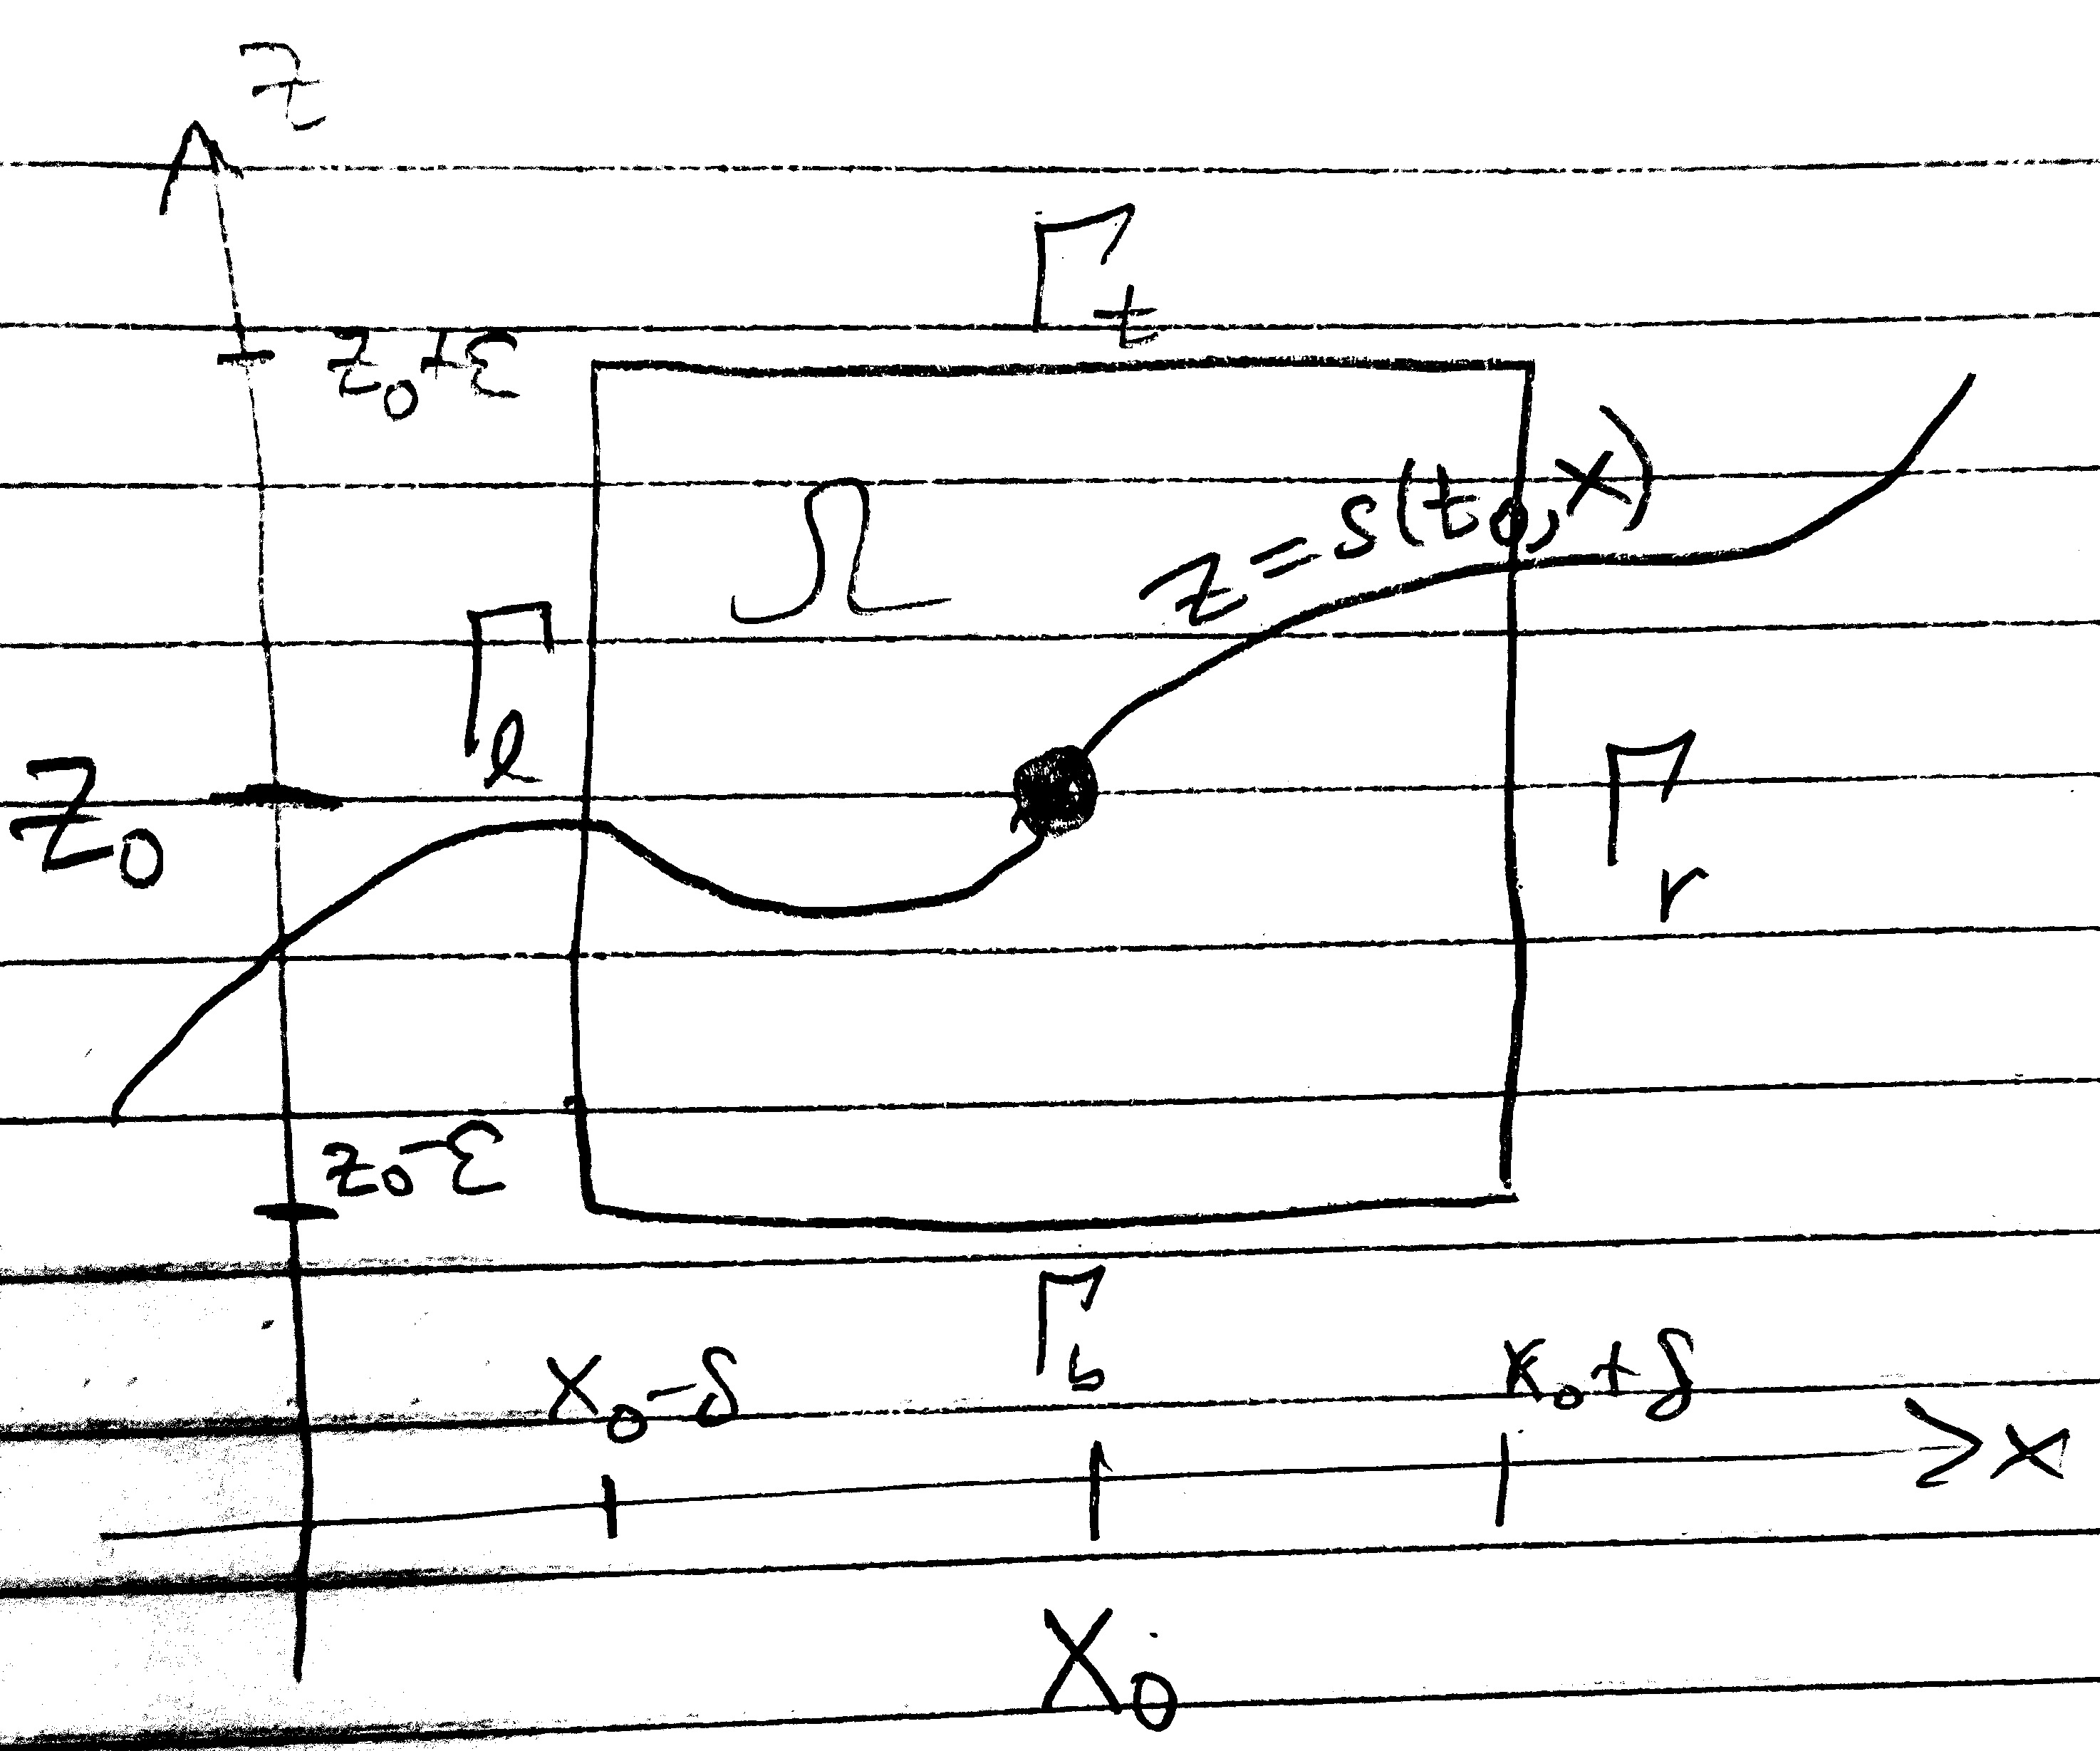 z
Γt
z₀+ε
Ω
z=s(t₀,x)
Γℓ
z₀
Γr
z₀-ε
Γb
x₀-δ
x₀+δ
x
x₀